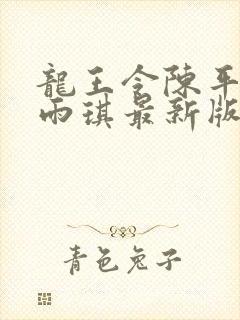 龍王令陳平
雨琪最新版
青色兔子